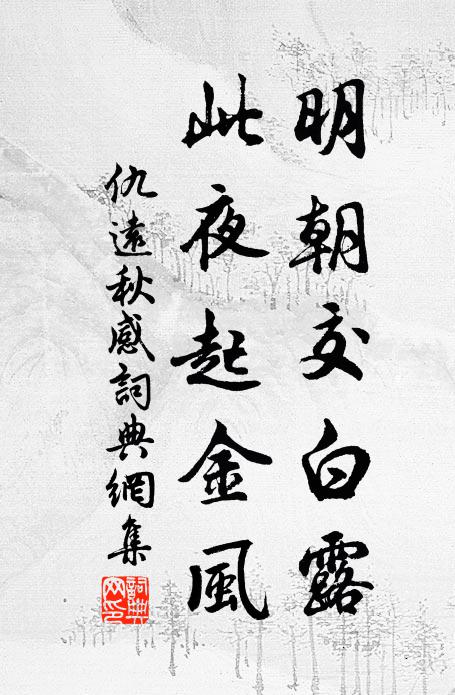 明朝交白露
此夜起金風
仇遠秋感詞典網集
詞典網印